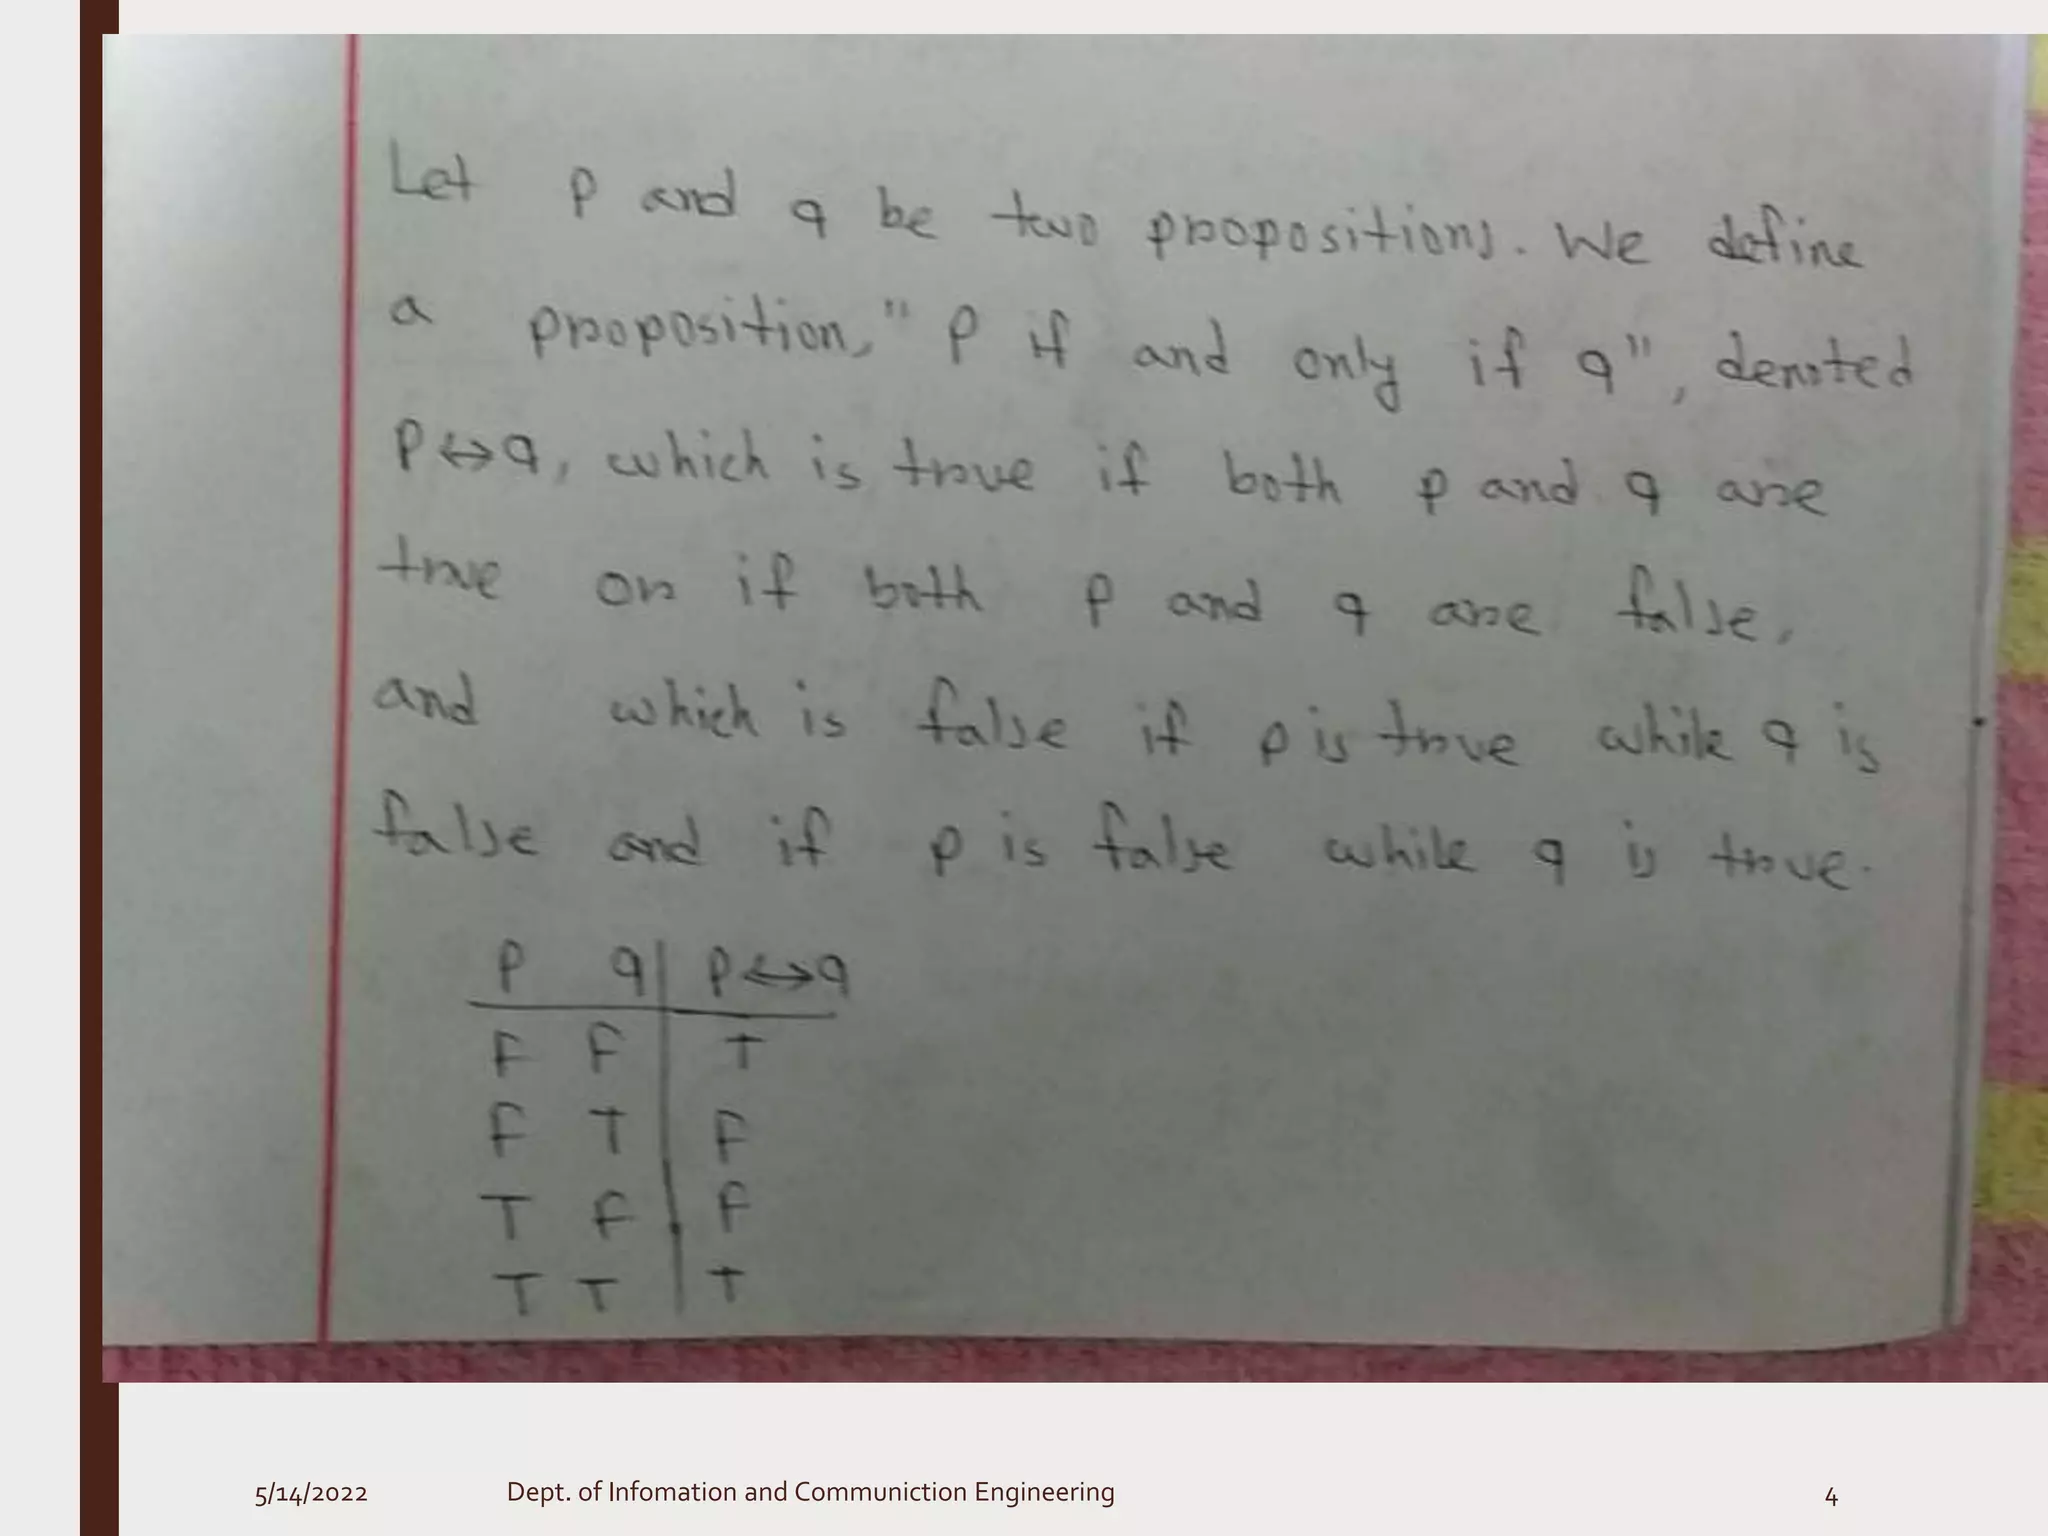 Let p and q be two propositions. We define
a proposition, "p if and only if q", denoted
p↔q, which is true if both p and q are
true or if both p and q are false,
and which is false if p is true while q is
false and if p is false while q is true.
p q p↔q
F F T
F T F
T F F
T T T
5/14/2022 Dept. of Infomation and Communiction Engineering 4